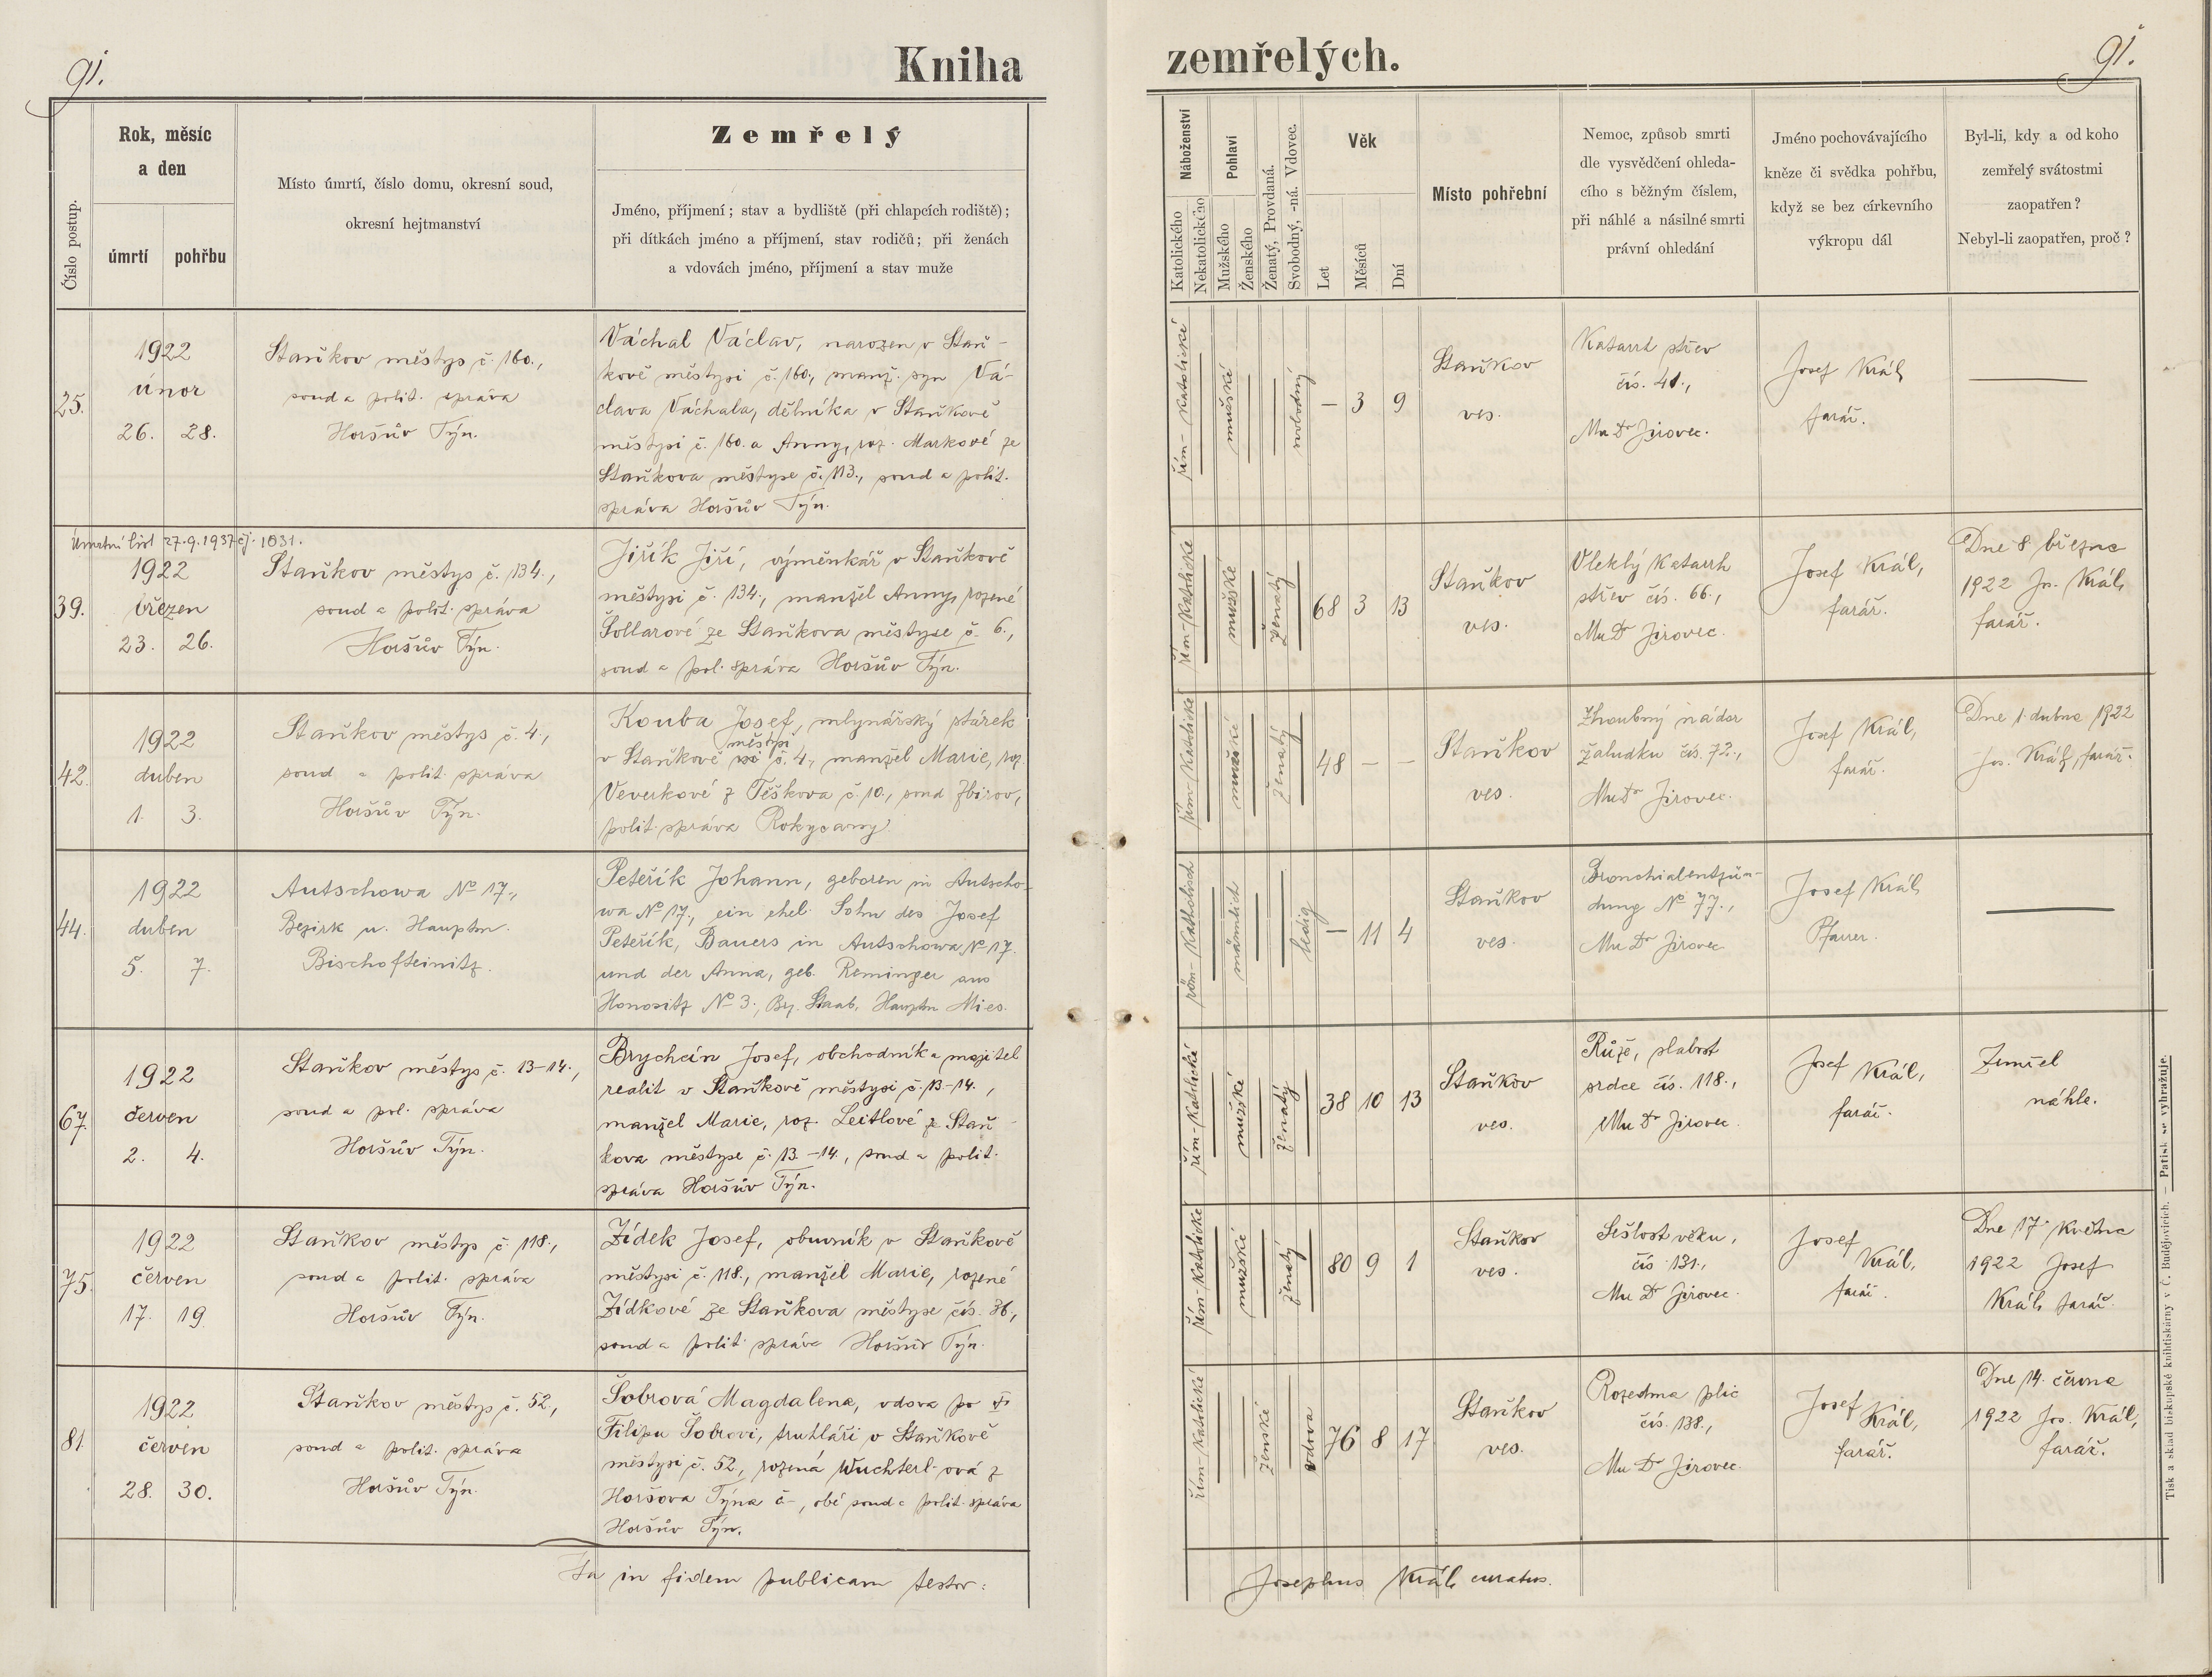 91.
Kniha
zemřelých.
91.
Číslo postup.
Rok, měsíc
a den
úmrtí
pohřbu
Místo úmrtí, číslo domu, okresní soud,
okresní hejtmanství
Zemřelý
Jméno, příjmení; stav a bydliště (při chlapcích rodiště);
při dítkách jméno a příjmení, stav rodičů; při ženách
a vdovách jméno, příjmení a stav muže
Náboženství
Katolického
Nekatolického
Pohlaví
Mužského
Ženského
Ženatý, Provdaná.
Svobodný, -ná. Vdovec.
Věk
Let
Měsíců
Dní
Místo pohřební
Nemoc, způsob smrti
dle vysvědčení ohleda-
cího s běžným číslem,
při náhlé a násilné smrti
právní ohledání
Jméno pochovávajícího
kněze či svědka pohřbu,
když se bez církevního
výkropu dál
Byl-li, kdy a od koho
zemřelý svátostmi
zaopatřen?
Nebyl-li zaopatřen, proč?
25.
1922
únor
26. 28.
Staňkov městys č. 160.,
soud a polit. správa
Horšův Týn.
Váchal Václav, narozen v Staň-
kově městysi č. 160., manž. syn Vá-
clava Váchala, dělníka v Staňkově
městysi č. 160. a Anny, roz. Markové ze
Staňkova městyse č. 113., soud a polit.
správa Horšův Týn.
řím-katolické
mužské
svobodný
– 3 9
Staňkov
ves.
Katarrh střev
čís. 41.,
MuDr Jirovec.
Josef Král,
farář.
Úmrtní list 27.9.1937 čj. 1031.
39.
1922
březen
23. 26.
Staňkov městys č. 134.,
soud a polit. správa
Horšův Týn.
Jiřík Jiří, výměnkář v Staňkově
městysi č. 134., manžel Anny, rozené
Šollarové ze Staňkova městyse č. 6.,
soud a pol. správa Horšův Týn.
řím-katolické
mužské
ženatý
68 3 13
Staňkov
ves.
Vleklý katarrh
střev čís. 66.,
MuDr Jirovec.
Josef Král,
farář.
Dne 8 března
1922 Jos. Král,
farář.
42.
1922
duben
1. 3.
Staňkov městys č. 4.,
soud a polit. správa
Horšův Týn.
Kouba Josef, mlynářský stárek
městysi
v Staňkově č. 4., manžel Marie, roz.
Veverkové z Těškova č. 10., soud Zbirov,
polit. správa Rokycany
řím-katolické
mužské
ženatý
48 – –
Staňkov
ves.
Zhoubný nádor
žaludku čís. 72.,
MuDr Jirovec.
Josef Král,
farář.
Dne 1. dubna 1922
Jos. Král, farář.
44.
1922
duben
5. 7.
Autschowa No 17.,
Bezirk u. Hauptm.
Bischofteinitz.
Peteřík Johann, geboren in Autscho-
wa No 17., ein ehel. Sohn des Josef
Peteřík, Bauers in Autschowa No 17.
und der Anna, geb. Reminger aus
Honositz No 3., Bz. Staab, Hauptm Mies.
röm-katholisch
männlich
ledig
– 11 4
Staňkov
ves.
Bronchialentzün-
dung No 77.,
MuDr Jirovec
Josef Král,
Pfarrer.
67.
1922
červen
2. 4.
Staňkov městys č. 13-14.,
soud a pol. správa
Horšův Týn.
Brychcín Josef, obchodník a majitel
realit v Staňkově městysi č. 13-14.,
manžel Marie, roz. Leitlové ze Staň-
kova městyse č. 13.-14., soud a polit.
správa Horšův Týn.
řím-katolické
mužské
ženatý
38 10 13
Staňkov
ves.
Růže, slabost
srdce čís. 118.,
MuDr Jirovec.
Josef Král,
farář.
Zemřel
náhle.
75.
1922
červen
17. 19
Staňkov městys č. 118.,
soud a polit. správa
Horšův Týn.
Žídek Josef, obuvník v Staňkově
městysi č. 118., manžel Marie, rozené
Žídkové ze Staňkova městyse čís. 36.,
soud a polit. správa Horšův Týn.
řím-katolické
mužské
ženatý
80 9 1
Staňkov
ves.
Sešlost věku,
čís. 131.,
MuDr Jirovec.
Josef Král,
farář.
Dne 17. května
1922 Josef
Král, farář.
81.
1922
červen
28. 30.
Staňkov městys č. 52.,
soud a polit. správa
Horšův Týn.
Šobrová Magdalena, vdova po
Filipu Šobrovi, truhláři v Staňkově
městysi č. 52., rozená Wuchterl-ová z
Horšova Týna č -, obé soud a polit. správa
Horšův Týn.
řím-katolické
ženské
vdova
76 8 17
Staňkov
ves.
Rozedma plic
čís. 138.,
MuDr Jirovec.
Josef Král,
farář.
Dne 14. června
1922 Jos. Král,
farář.
Ita in fidem publicam testor:
Josephus Král, curatus.
Tisk a sklad biskupské knihtiskárny v Č. Budějovicích. — Patisk se vyhražuje.